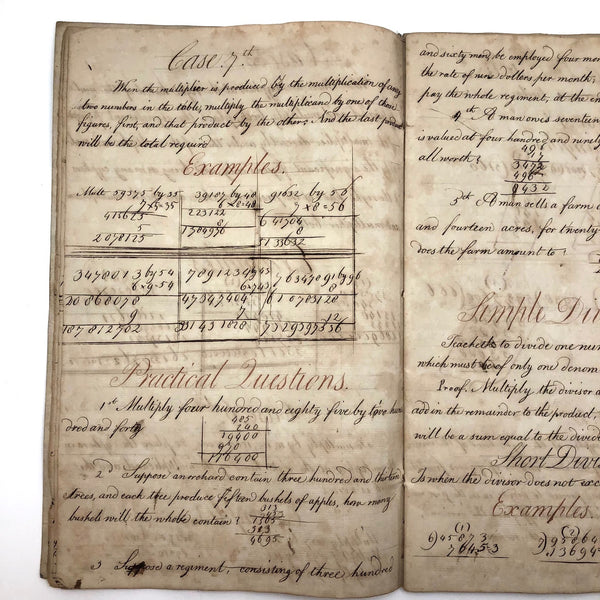 Case. 7.th
When the multiplier is produced by the multiplication of any
two numbers in the table; multiply the multiplicand by one of those
figures, first, and that product by the other; And the last product
will be the total requird
Examples.
Mult 59375 by 35 39187 by 48 91632 by 56
7×5=35 6×8=48 7×8=56
415625 223122 641704
5 8 8
2078125 1784976 5133632
3478013 by 54 7891234
6×9=54
20868078 47347404 61078128
9 7 12
187812702 331431828 732937536
Practical Questions.
1st Multiply four hundred and eighty five by two hun
dred and forty
485
240
19400
970
116400
2d Suppose an orchard contain three hundred and thirteen
trees, and each tree produce fifteen bushels of apples, how many
bushels will the whole contain?
313
1565
313
4695
3 Suppose a regiment, consisting of three hundred
and sixty men, be employed four mon
the rate of nine dollars per month,
pay the whole regiment, at the en
4th A man owns seventeen
is valued at four hundred and ninety
all worth?
496
17
3472
496
8432
5th A man sells a farm
and fourteen acres, for twenty
does the farm amount to?
Simple Div
Teacheth to divide one num
which must be of only one denom
Proof. Multiply the divisor a
add in the remainder to the product,
will be a sum equal to the divide
Short Divi
Is when the divisor does not exc
Examples.
(1) (2)
6)45873
7645=3